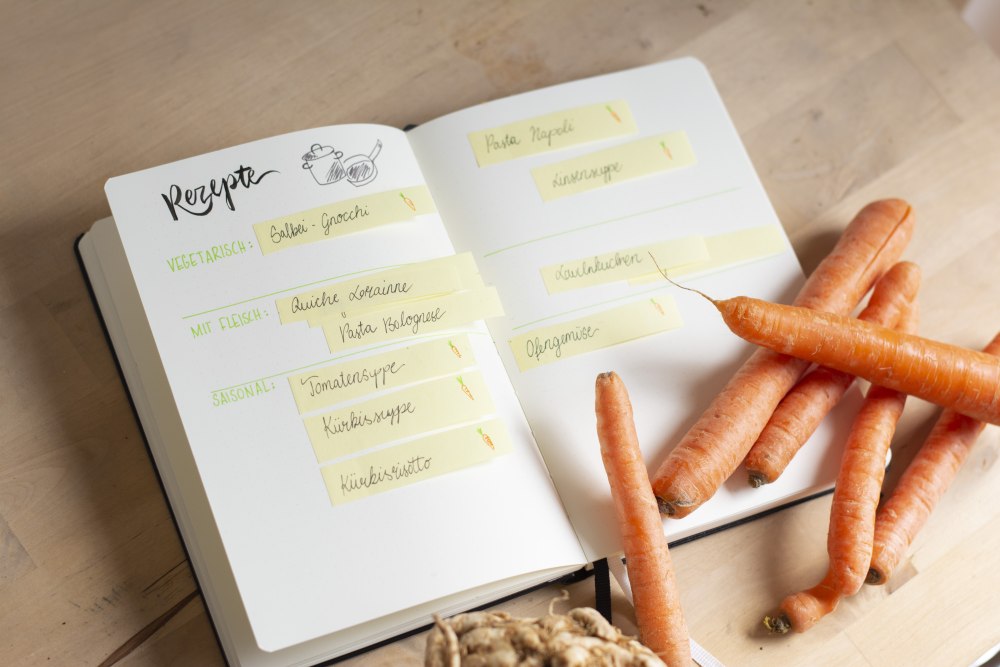 Rezepte
VEGETARISCH:
Salbei - Gnocchi
MIT FLEISCH:
Quiche Lorainne
Pasta Bolognese
SAISONAL:
Tomatensuppe
Kürbissuppe
Kürbisrisotto
Pasta Napoli
Linsensuppe
Lauchkuchen
Ofengemüse